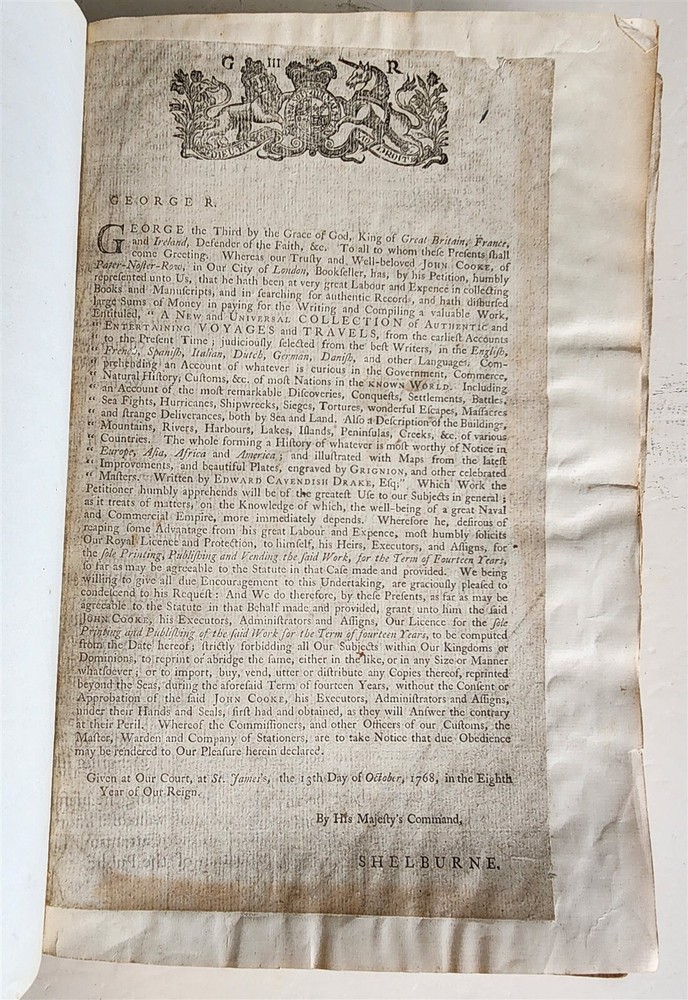 G III R
DIEU ET DROIT
GEORGE R.
GEORGE the Third by the Grace of God, King of Great Britain, France,
and Ireland, Defender of the Faith, &c. To all to whom these Presents ſhall
come Greeting. Whereas our Truſty and Well-beloved JOHN COOKE, of
Pater-Noſter-Row, in Our City of London, Bookſeller, has, by his Petition, humbly
repreſented unto Us, that he hath been at very great Labour and Expence in collecting
Books and Manuſcripts, and in ſearching for authentic Records, and hath diſburſed
large Sums of Money in paying for the Writing and Compiling a valuable Work,
Entituled, “ A NEW and UNIVERSAL COLLECTION of AUTHENTIC and
“ ENTERTAINING VOYAGES and TRAVELS, from the earlieſt Accounts
“ to the Preſent Time; judiciouſly ſelected from the beſt Writers, in the Engliſh,
“ French, Spaniſh, Italian, Dutch, German, Daniſh, and other Languages. Com-
“ prehending an Account of whatever is curious in the Government, Commerce,
“ Natural Hiſtory, Cuſtoms, &c. of moſt Nations in the KNOWN WORLD. Including
“ an Account of the moſt remarkable Diſcoveries, Conqueſts, Settlements, Battles,
“ Sea Fights, Hurricanes, Shipwrecks, Sieges, Tortures, wonderful Eſcapes, Maſſacres
“ and ſtrange Deliverances, both by Sea and Land. Alſo a Deſcription of the Buildings,
“ Mountains, Rivers, Harbours, Lakes, Iſlands, Peninſulas, Creeks, &c. of various
“ Countries. The whole forming a Hiſtory of whatever is moſt worthy of Notice in
“ Europe, Aſia, Africa and America; and illuſtrated with Maps from the lateſt
“ Improvements, and beautiful Plates, engraved by GRIGNION, and other celebrated
“ Maſters. Written by EDWARD CAVENDISH DRAKE, Eſq;” Which Work the
Petitioner humbly apprehends will be of the greateſt Uſe to our Subjects in general;
as it treats of matters, on the Knowledge of which, the well-being of a great Naval
and Commercial Empire, more immediately depends. Wherefore he, deſirous of
reaping ſome Advantage from his great Labour and Expence, moſt humbly ſolicits
Our Royal Licence and Protection, to himſelf, his Heirs, Executors, and Aſſigns, for
the ſole Printing, Publiſhing and Vending the ſaid Work, for the Term of Fourteen Years,
ſo far as may be agreeable to the Statute in that Caſe made and provided. We being
willing to give all due Encouragement to this Undertaking, are graciouſly pleaſed to
condeſcend to his Requeſt: And We do therefore, by theſe Preſents, as far as may be
agreeable to the Statute in that Behalf made and provided, grant unto him the ſaid
JOHN COOKE, his Executors, Adminiſtrators and Aſſigns, Our Licence for the ſole
Printing and Publiſhing of the ſaid Work for the Term of fourteen Years, to be computed
from the Date hereof; ſtrictly forbidding all Our Subjects within Our Kingdoms or
Dominions, to reprint or abridge the ſame, either in the like, or in any Size or Manner
whatſoever; or to import, buy, vend, utter or diſtribute any Copies thereof, reprinted
beyond the Seas, during the aforeſaid Term of fourteen Years, without the Conſent or
Approbation of the ſaid JOHN COOKE, his Executors, Adminiſtrators and Aſſigns,
under their Hands and Seals, firſt had and obtained, as they will Anſwer the contrary
at their Peril. Whereof the Commiſſioners, and other Officers of our Cuſtoms, the
Maſter, Warden and Company of Stationers, are to take Notice that due Obedience
may be rendered to Our Pleaſure herein declared.
Given at Our Court, at St. James's, the 13th Day of October, 1768, in the Eighth
Year of Our Reign.
By His Majeſty's Command,
SHELBURNE.